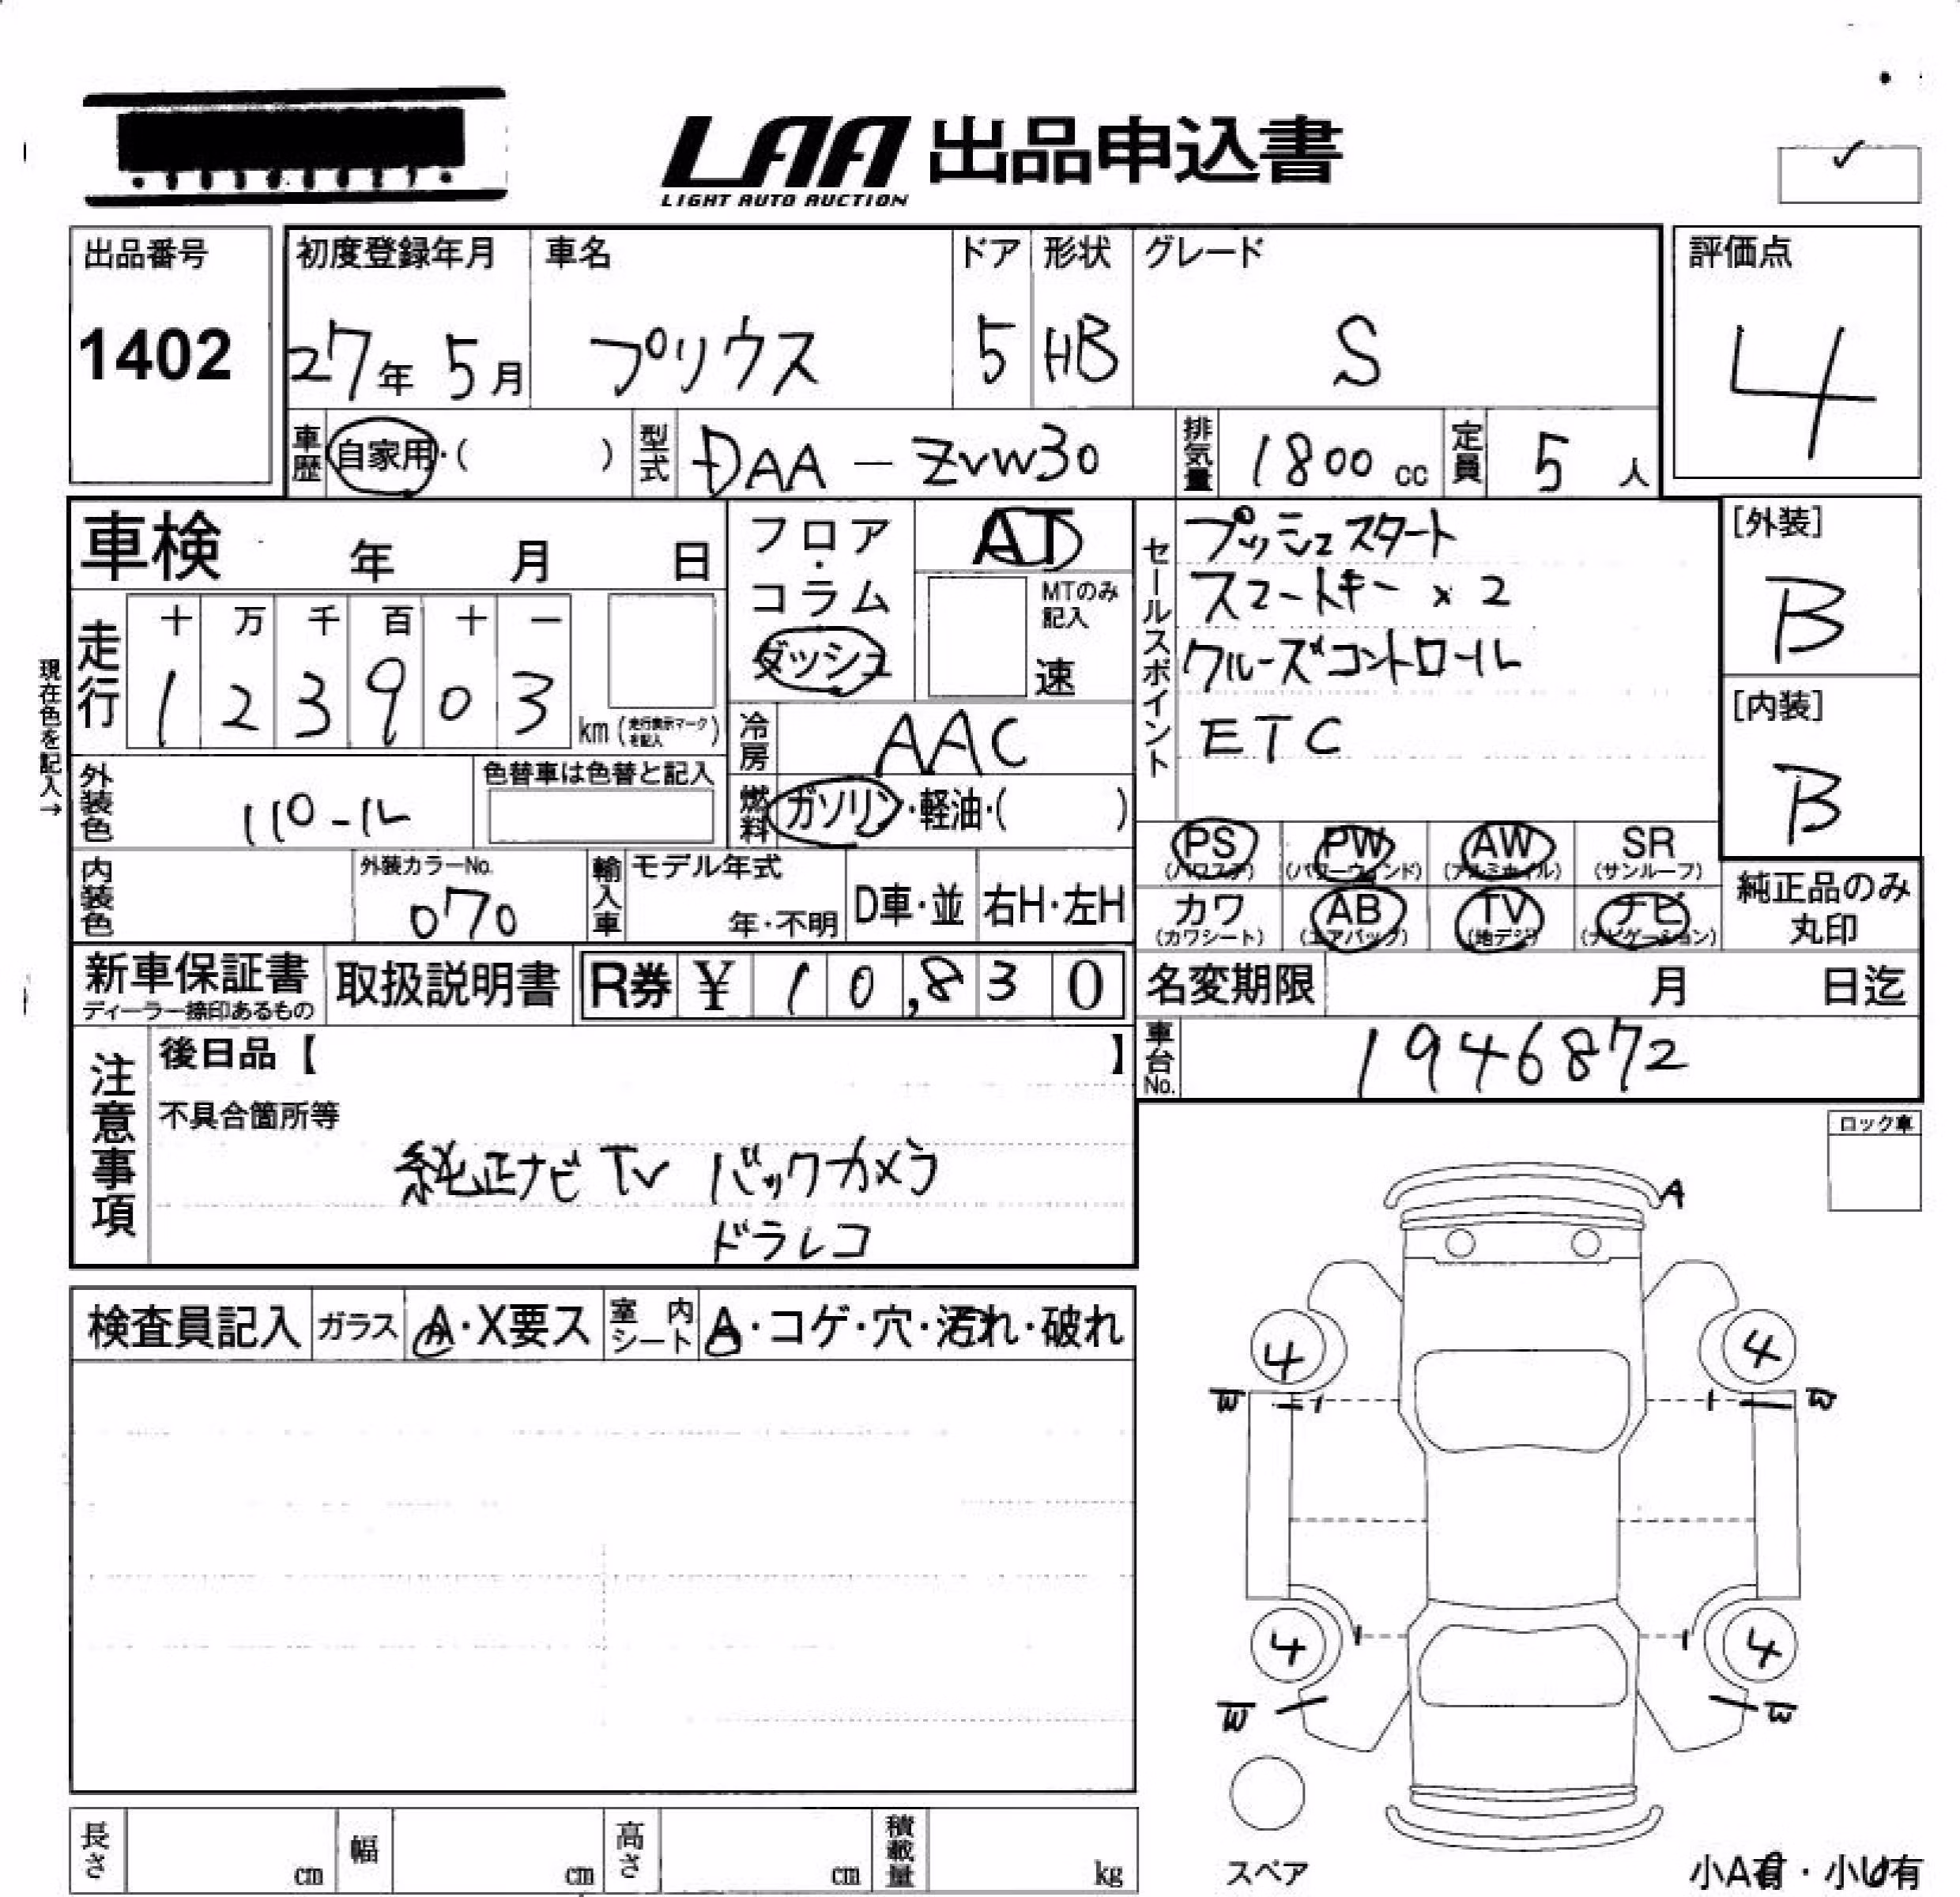 LAA 出品申込書
LIGHT AUTO AUCTION
出品番号
1402
初度登録年月 車名 ドア 形状 グレード
27年 5月 プリウス 5 HB S
評価点
4
車歴 自家用・( ) 型式 DAA - ZVW30 排気量 1800 cc 定員 5 人
車検 年 月 日
フロア・コラム ダッシュ
AT
MTのみ記入
速
走行 十 万 千 百 十 一
1 2 3 9 0 3 km (走行表示マークを記入)
現在色を記入→
冷房 AAC
外装色 パール
色替車は色替と記入
燃料 ガソリン・軽油・( )
内装色
外装カラーNo.
070
輸入車 モデル年式
年・不明 D車・並 右H・左H
セールスポイント
プッシュスタート
スマートキー×2
クルーズコントロール
ETC
[外装]
B
[内装]
B
PS (パワステ) PW (パワーウィンド) AW (アルミホイル) SR (サンルーフ)
カワ (カワシート) AB (エアバック) TV (地デジ) ナビ (ナビゲーション)
純正品のみ
丸印
新車保証書 取扱説明書 R券 ¥ 10,830
ディーラー捺印あるもの
名変期限 月 日迄
車台No. 1946872
注意事項
後日品【 】
不具合箇所等
純正ナビ TV バックカメラ
ドラレコ
ロック車
検査員記入 ガラス A・X要ス 室内シート A・コゲ・穴・汚れ・破れ
A
4 4
W W
4 4
W W
スペア
小A有・小U有
長さ cm 幅 cm 高さ cm 積載量 kg